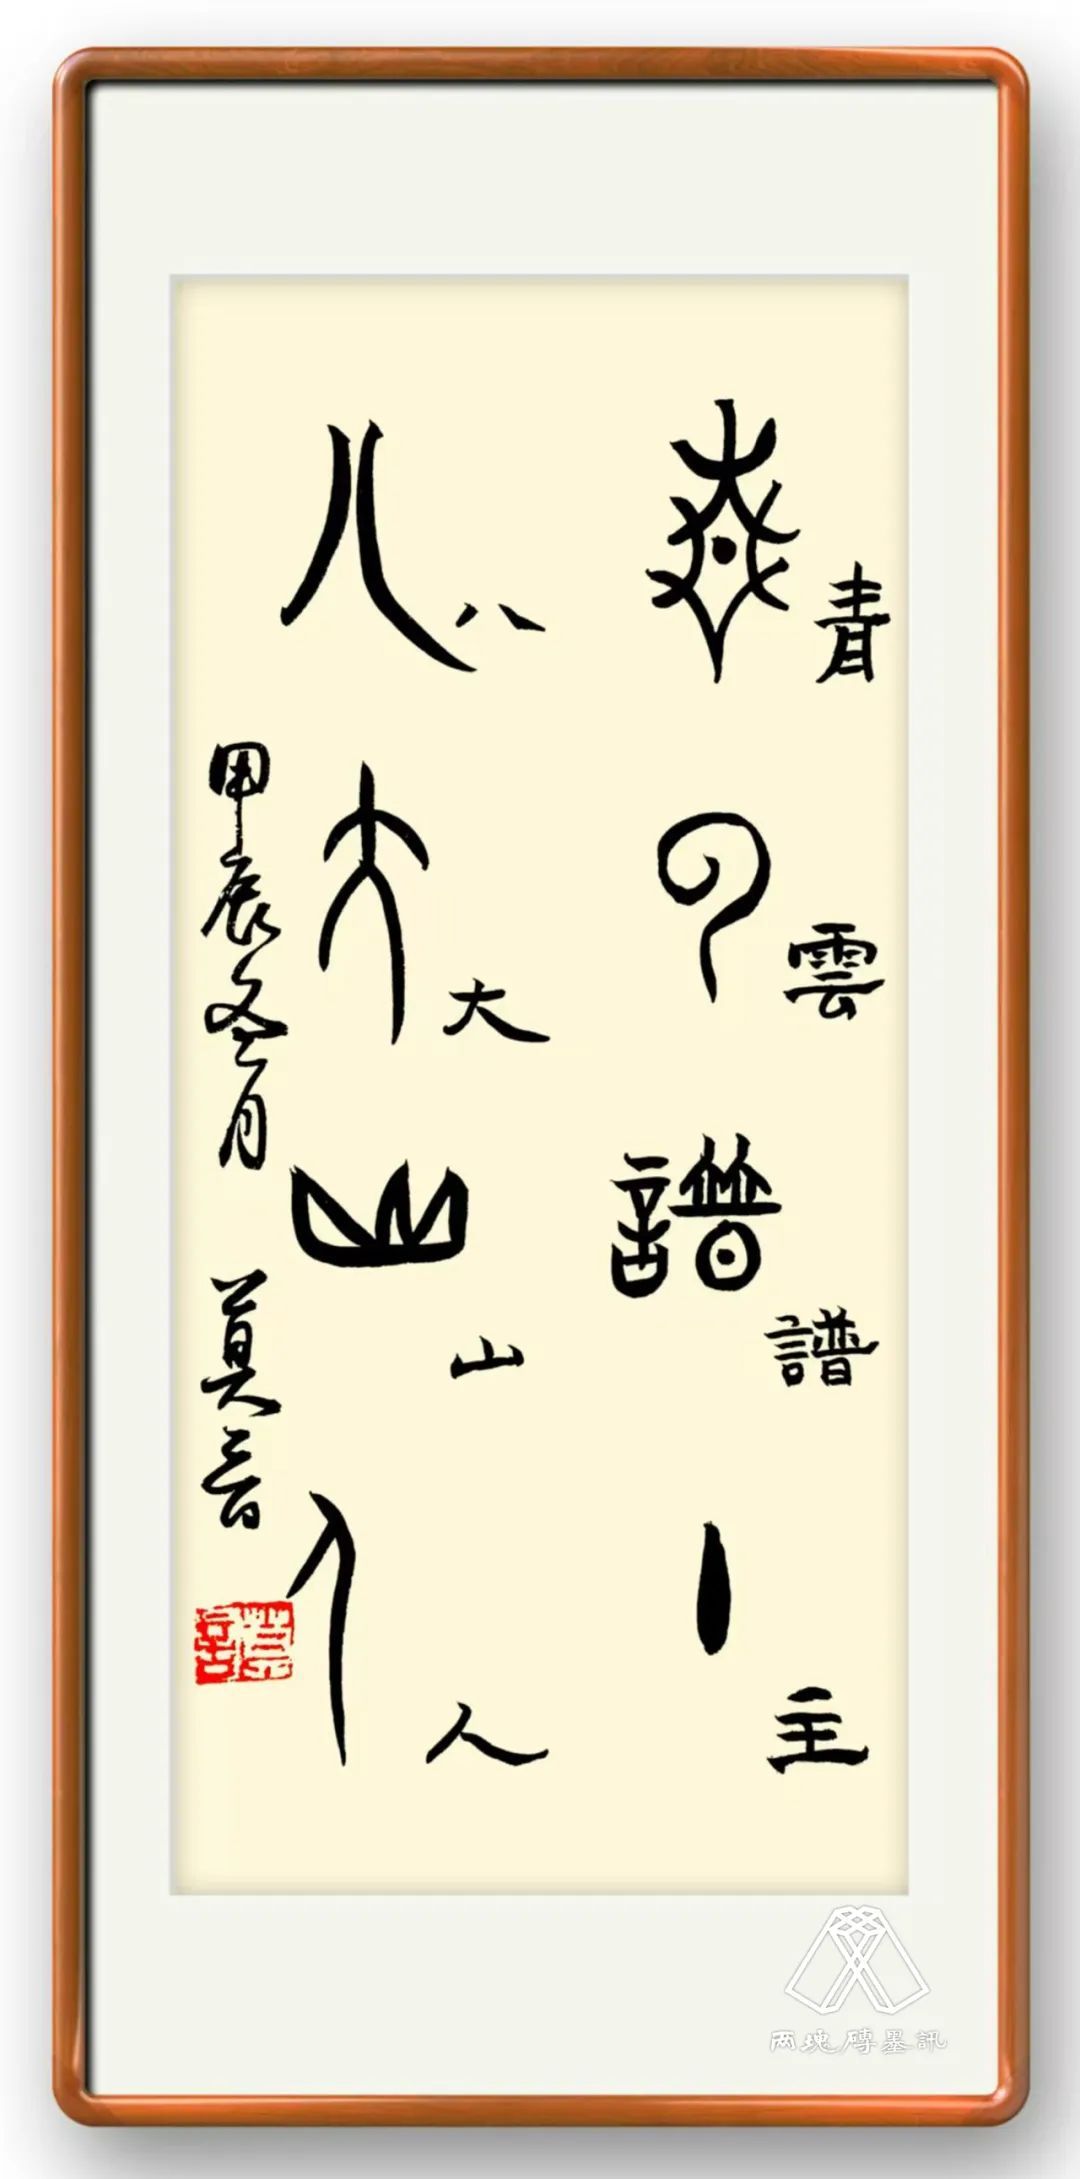 青雲譜主
八大山人
甲辰冬月 莫言
两塊磚墨訊